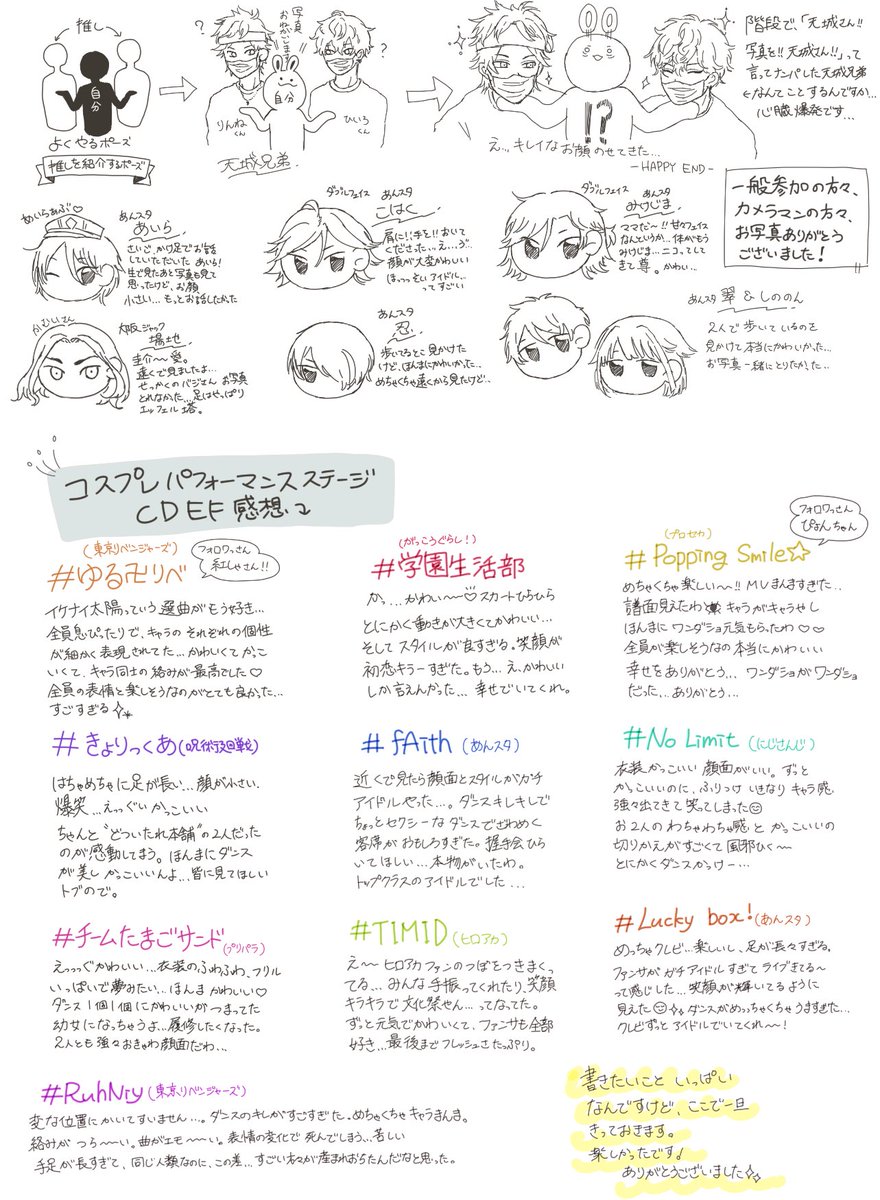 推し
自分
よくやるポーズ
推しを紹介するポーズ
?
写真
おねがいします
?
自分
りんねくん
ひいろくん
天城兄弟
!?
え…キレイなお顔のせてきた…
-HAPPY END-
階段で、「天城さん!!
写真を!!天城さん!!」って
言ってナンパした天城兄弟
←なんてことするんですか…
心臓爆発です…
一般参加の方々、
カメラマンの方々、
お写真ありがとう
ございました!
あんスタ
あいら
さいご、かけ足でお話
していただいた あいら!
生で見たあと写真も見て
思ったけど、お顔
小さい…もっとお話したかった
ダブルフェイス
あんスタ
こはく
肩に!!手を!!おいて
くださった…え…う"
顔が大変かわいい
ほっっそいアイドル…
ってすごい
ダブルフェイス
あんスタ
みけじま
ママだ~!!甘々フェイス
なんというか…体がもう
みけじま…ニコってして
きて尊。かわい…
かむいさん
大阪ジャック
場地
圭介~愛。
遠くで見ましたよ…
せっかくのバジさん お写真
とれなかった…足はやっぱり
エッフェル塔。
あんスタ
忍
歩いてるとこ見かけた
けど、ほんまにかわいかった…
めちゃくちゃ遠くから見たけど…
あんスタ 翠&しののん
2人で歩いているのを
見かけて本当にかわいかった…
お写真一緒にとりたかった…
コスプレパフォーマンスステージ
CDEF感想
(東京リベンジャーズ)
#ゆる卍リベ
フォロワさん
紅しゃさん!!
イケナイ太陽っていう選曲がもう好き…
全員息ぴったりで、キャラのそれぞれの個性
が細かく表現されてて…かわいくてかっこ
いくて、キャラ同士の絡みが最高でした♡
全員の表情と楽しそうなのがとても良かった…
すごすぎる
(がっこうぐらし!)
#学園生活部
かっ…かわい~~♡スカートひらひら
とにかく動きが大きくてかわいい…
そしてスタイルが良すぎる。笑顔が
初恋キラーすぎた。もう…え、かわいい
しか言えんかった…幸せでいてくれ。
(プロセカ)
#Popping Smile☆
フォロワさん
ぴょんちゃん
めちゃくちゃ楽しい~!!MVまんますぎた…
譜面見えたわ キャラがキャラやし
ほんまにワンダショ元気もらったわ♡♡
全員が楽しそうなの本当にかわいい
幸せをありがとう…ワンダショがワンダショ
だった…ありがとう…
#きょりっくあ(呪術廻戦)
はちゃめちゃに足が長い…顔が小さい。
爆笑…えっぐいかっこいい
ちゃんと"どついたれ本舗"の2人だった
のが感動してまう。ほんまにダンス
が美しかっこいいんよ…皆に見てほしい
トブので。
#fAith(あんスタ)
近くで見たら顔面とスタイルがガチ
アイドルやった…。ダンスキレキレで
ちょっとセクシーなダンスでざわめく
客席がおもしろすぎた。握手会ひら
いてほしい…本物がいたわ。
トップクラスのアイドルでした…
#No Limit(にじさんじ)
衣装かっこいい 顔面がいい。ずっと
かっこいいのに、ふりつけいきなりキャラ感
強々出てきて笑ってしまった
お2人のわちゃわちゃ感とかっこいいの
切りかえがすごくて風邪ひく~
とにかくダンスかっけー…
#チームたまごサンド(プリパラ)
えっっぐかわいい…衣装のふわふわ、フリル
いっぱいで夢みたい…ほんまかわいい♡
ダンス1個1個にかわいいがつまってた
幼女になっちゃうよ…履修したくなった。
2人とも強々おきゃわ顔面だわ…
#TIMID(ヒロアカ)
え~ヒロアカファンのつぼをつきまくっ
てる…みんな手振ってくれたり、笑顔
キラキラで文化祭やん…ってなってた。
ずっと元気でかわいくて、ファンサも全部
好き…最後までフレッシュさたっぷり。
#Lucky box!(あんスタ)
めっちゃクレビ…楽しいし、足が長々すぎる。
ファンサがガチアイドルすぎてライブきてる~
って感じした…笑顔が輝いてるように
見えた ダンスがめっっちゃくちゃうますぎた…
クレビずっとアイドルでいてくれ~~!
#RuhNiy(東京リベンジャーズ)
変な位置にかいてすいません…。ダンスのキレがすごすぎた。めちゃくちゃキャラまんま。
絡みがつら~~い。曲がエモ~~い。表情の変化で死んでしまう…苦しい
手足が長すぎて、同じ人類なのに、この差…すごい方々が産まれおちたんだなと思った。
書きたいこと いっぱい
なんですけど、ここで一旦
きっておきます。
楽しかったです!
ありがとうございました